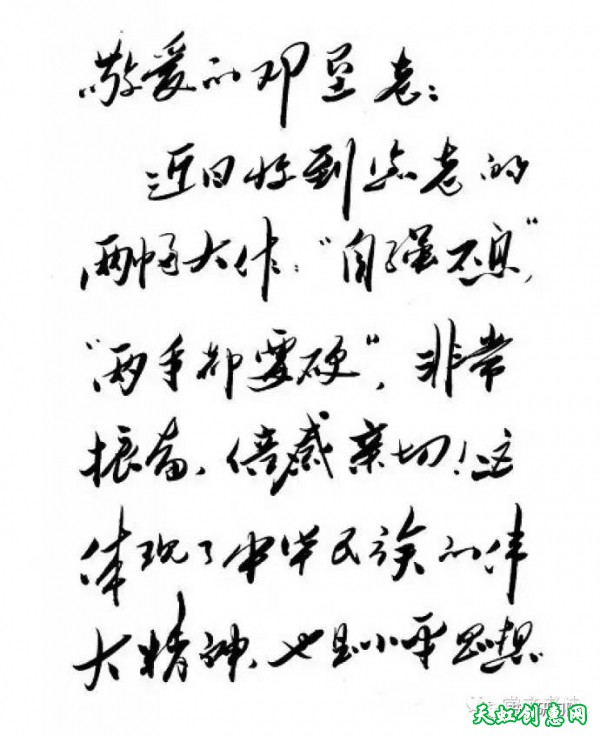 敬爱的邓垦老：
近日收到您老的
两幅大作：“自强不息”，
“两手都要硬”，非常
振奋，倍感亲切！这
体现了中华民族的伟
大精神，也是小平思想
天虹创意网